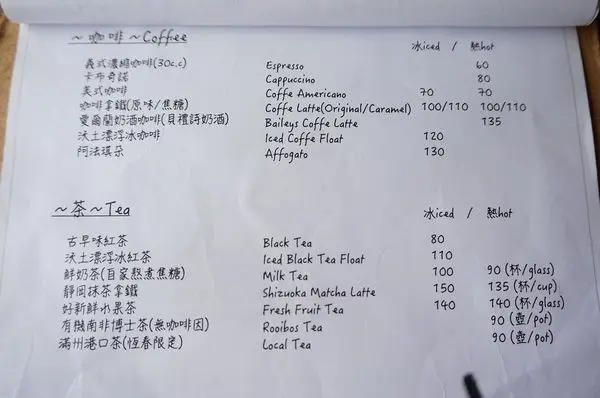 ~咖啡~Coffee 冰iced / 熱hot
義式濃縮咖啡(30c.c) Espresso 60
卡布奇諾 Cappuccino 80
美式咖啡 Coffe Americano 70 70
咖啡拿鐵(原味/焦糖) Coffe Latte(Original/Caramel) 100/110 100/110
愛爾蘭奶酒咖啡(貝禮詩奶酒) Baileys Coffe Latte 135
沃土漂浮冰咖啡 Iced Coffe Float 120
阿法淇朵 Affogato 130
~茶~Tea 冰iced / 熱hot
古早味紅茶 Black Tea 80
沃土漂浮冰紅茶 Iced Black Tea Float 110
鮮奶茶(自家熬煮焦糖) Milk Tea 100 90 (杯/glass)
靜岡抹茶拿鐵 Shizuoka Matcha Latte 150 135 (杯/cup)
好新鮮水果茶 Fresh Fruit Tea 140 140 (杯/glass)
有機南非博士茶(無咖啡因) Rooibos Tea 90 (壺/pot)
滿州港口茶(恆春限定) Local Tea 90 (壺/pot)